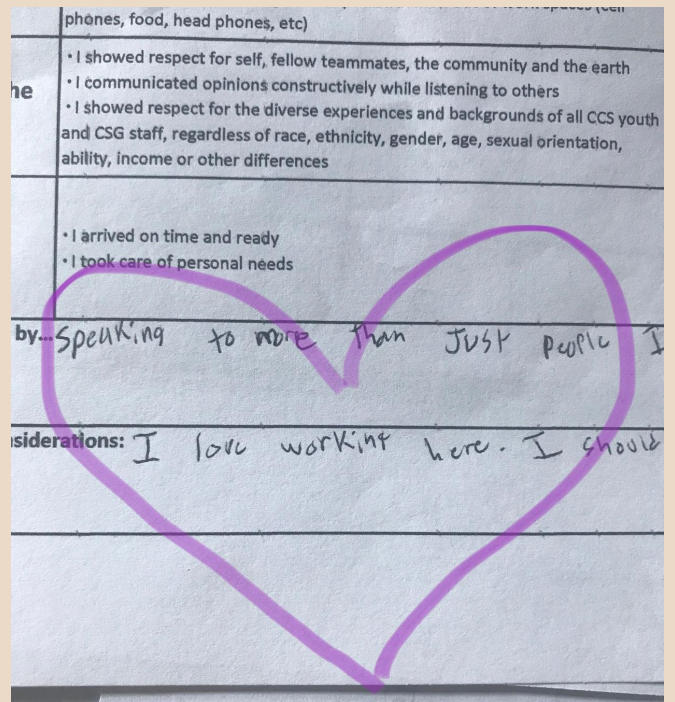 phones, food, head phones, etc)
• I showed respect for self, fellow teammates, the community and the earth
he
• I communicated opinions constructively while listening to others
• I showed respect for the diverse experiences and backgrounds of all CCS youth
and CSG staff, regardless of race, ethnicity, gender, age, sexual orientation,
ability, income or other differences
• I arrived on time and ready
• I took care of personal needs
by... Speaking to more than Just people I
siderations: I love working here. I should